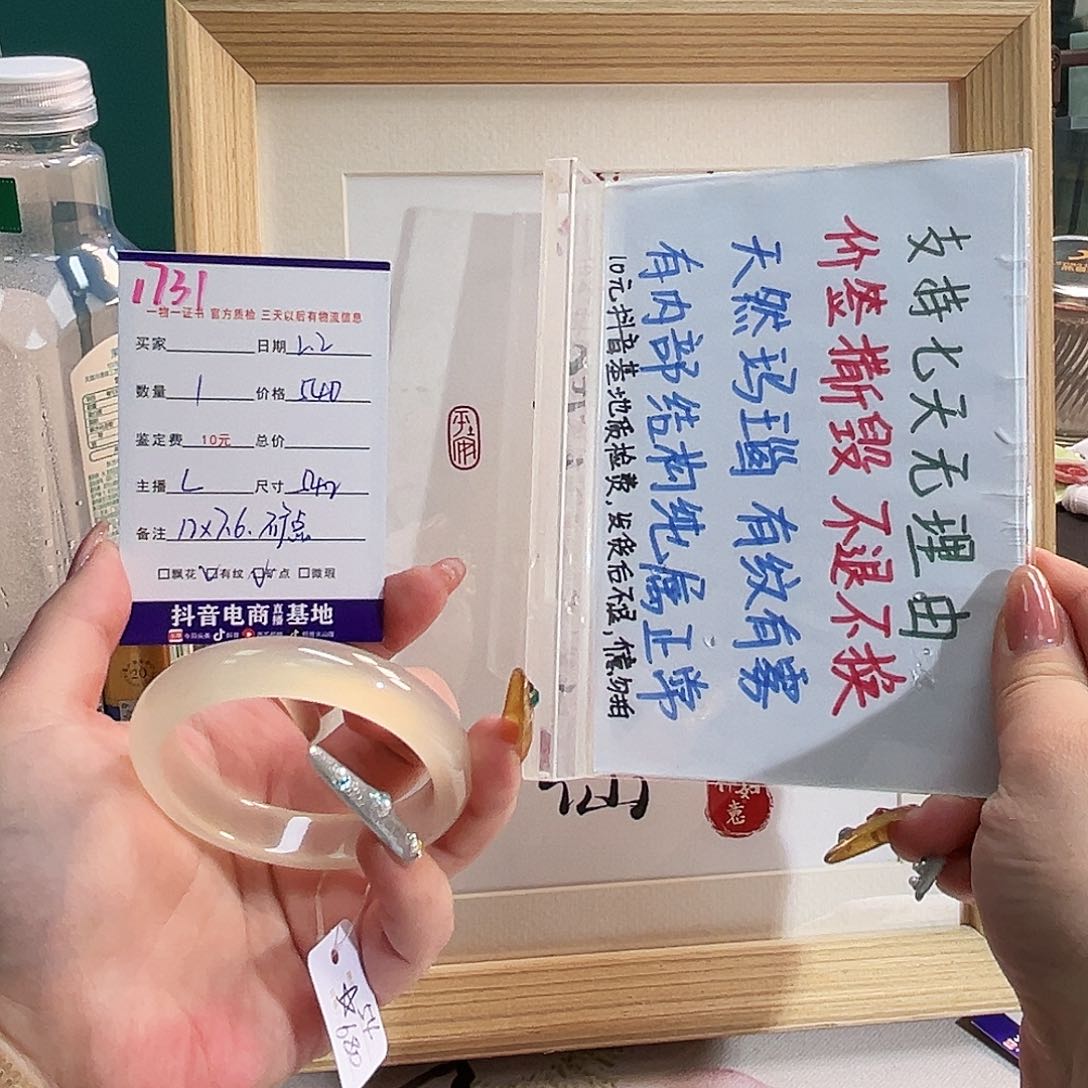 1731
一物一证书 官方质检 三天以后有物流信息
买家 日期 2.2
数量 1 价格 540
鉴定费 10元 总价
主播 L 尺寸 54
备注 17x7.6. 矿点
飘花 有纹 矿点 微瑕
抖音电商直播基地
今日头条 抖音
支持七天无理由
价签撕毁 不退不换
天然玛瑙 有纹有雾
有内部结构纯属正常
10元抖音基地质检费,发货后不退,介意勿拍
54
680
如意